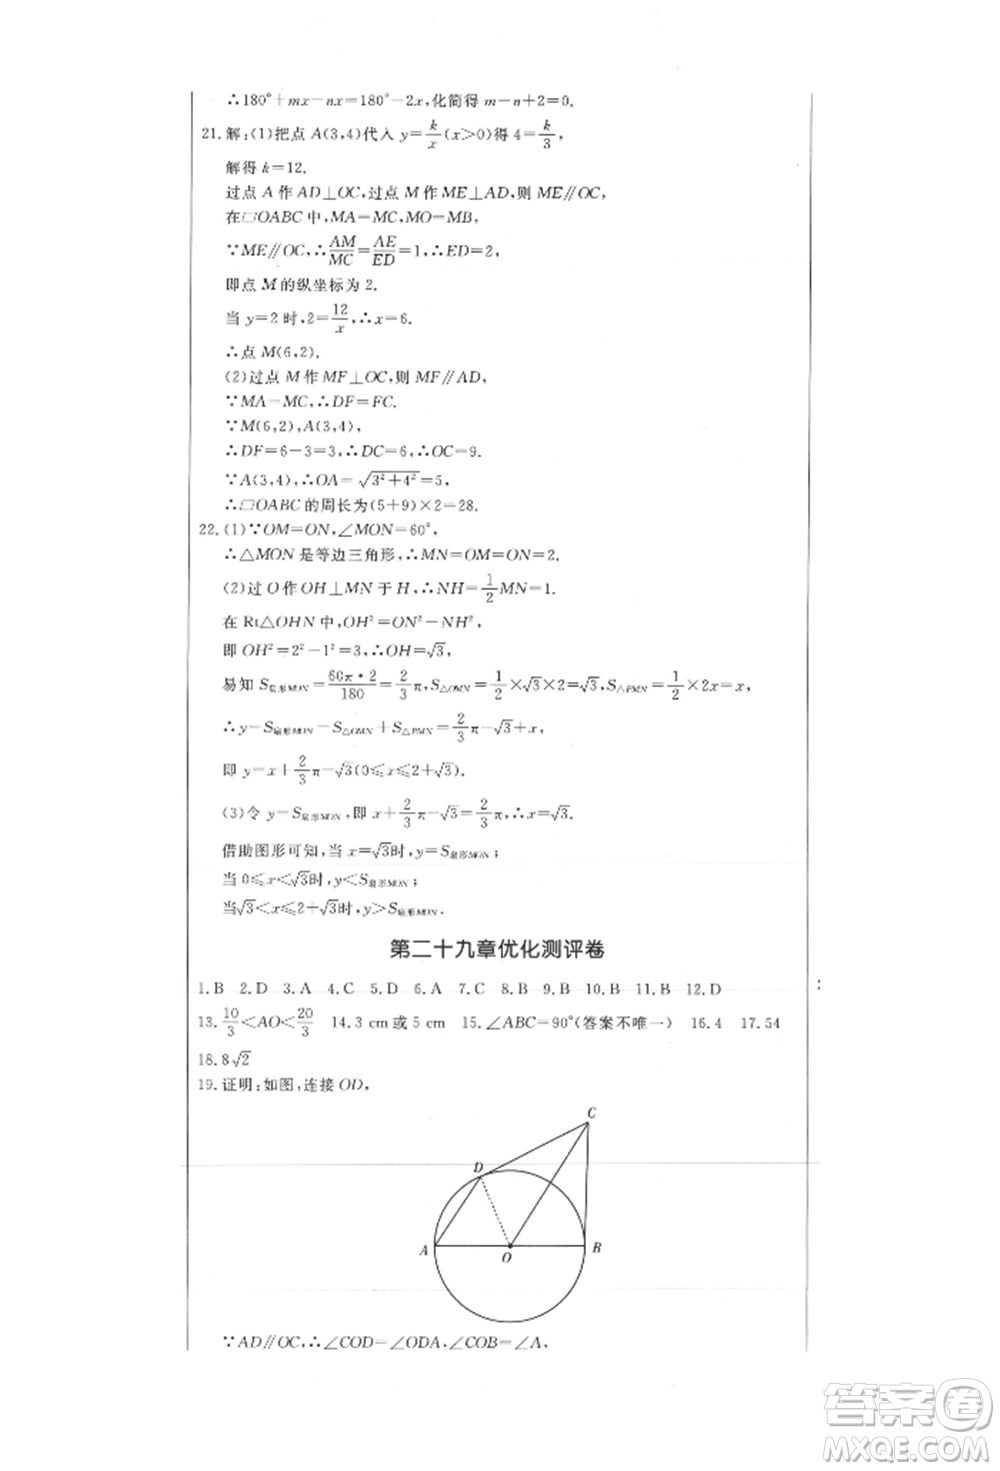 ∴180°+mx−nx=180°−2x,化简得 m−n+2=0.
21.解:(1)把点 A(3,4)代入 y=k/x(x>0)得 4=k/3,
解得 k=12.
过点 A 作 AD⊥OC,过点 M 作 ME⊥AD,则 ME∥OC,
在□OABC 中,MA=MC,MO=MB,
∵ME∥OC,∴AM/MC=AE/ED=1,∴ED=2,
即点 M 的纵坐标为 2.
当 y=2 时,2=12/x,∴x=6.
∴点 M(6,2).
(2)过点 M 作 MF⊥OC,则 MF∥AD,
∵MA=MC,∴DF=FC.
∵M(6,2),A(3,4),
∴DF=6−3=3,∴DC=6,∴OC=9.
∵A(3,4),∴OA=√(3²+4²)=5,
∴□OABC 的周长为(5+9)×2=28.
22.(1)∵OM=ON,∠MON=60°,
∴△MON 是等边三角形,∴MN=OM=ON=2.
(2)过 O 作 OH⊥MN 于 H,∴NH=1/2MN=1.
在 Rt△OHN 中,OH²=ON²−NH²,
即 OH²=2²−1²=3,∴OH=√3,
易知 S扇形MON=60π·2/180=2/3π,S△OMN=1/2×√3×2=√3,S△PMN=1/2×2x=x,
∴y=S扇形MON−S△OMN+S△PMN=2/3π−√3+x,
即 y=x+2/3π−√3(0≤x≤2+√3).
(3)令 y=S扇形MON,即 x+2/3π−√3=2/3π,∴x=√3.
借助图形可知,当 x=√3时,y=S扇形MON;
当 0≤x<√3时,y<S扇形MON;
当√3<x≤2+√3时,y>S扇形MON.
第二十九章优化测评卷
1.B 2.D 3.A 4.C 5.D 6.A 7.C 8.B 9.B 10.B 11.B 12.D
13.10/3<AO<20/3 14.3 cm或5 cm 15.∠ABC=90°(答案不唯一) 16.4 17.54
18.8√2
19.证明:如图,连接 OD,
C
D
A O B
∵AD∥OC,∴∠COD=∠ODA,∠COB=∠A,
答案卷
MXQE.COM